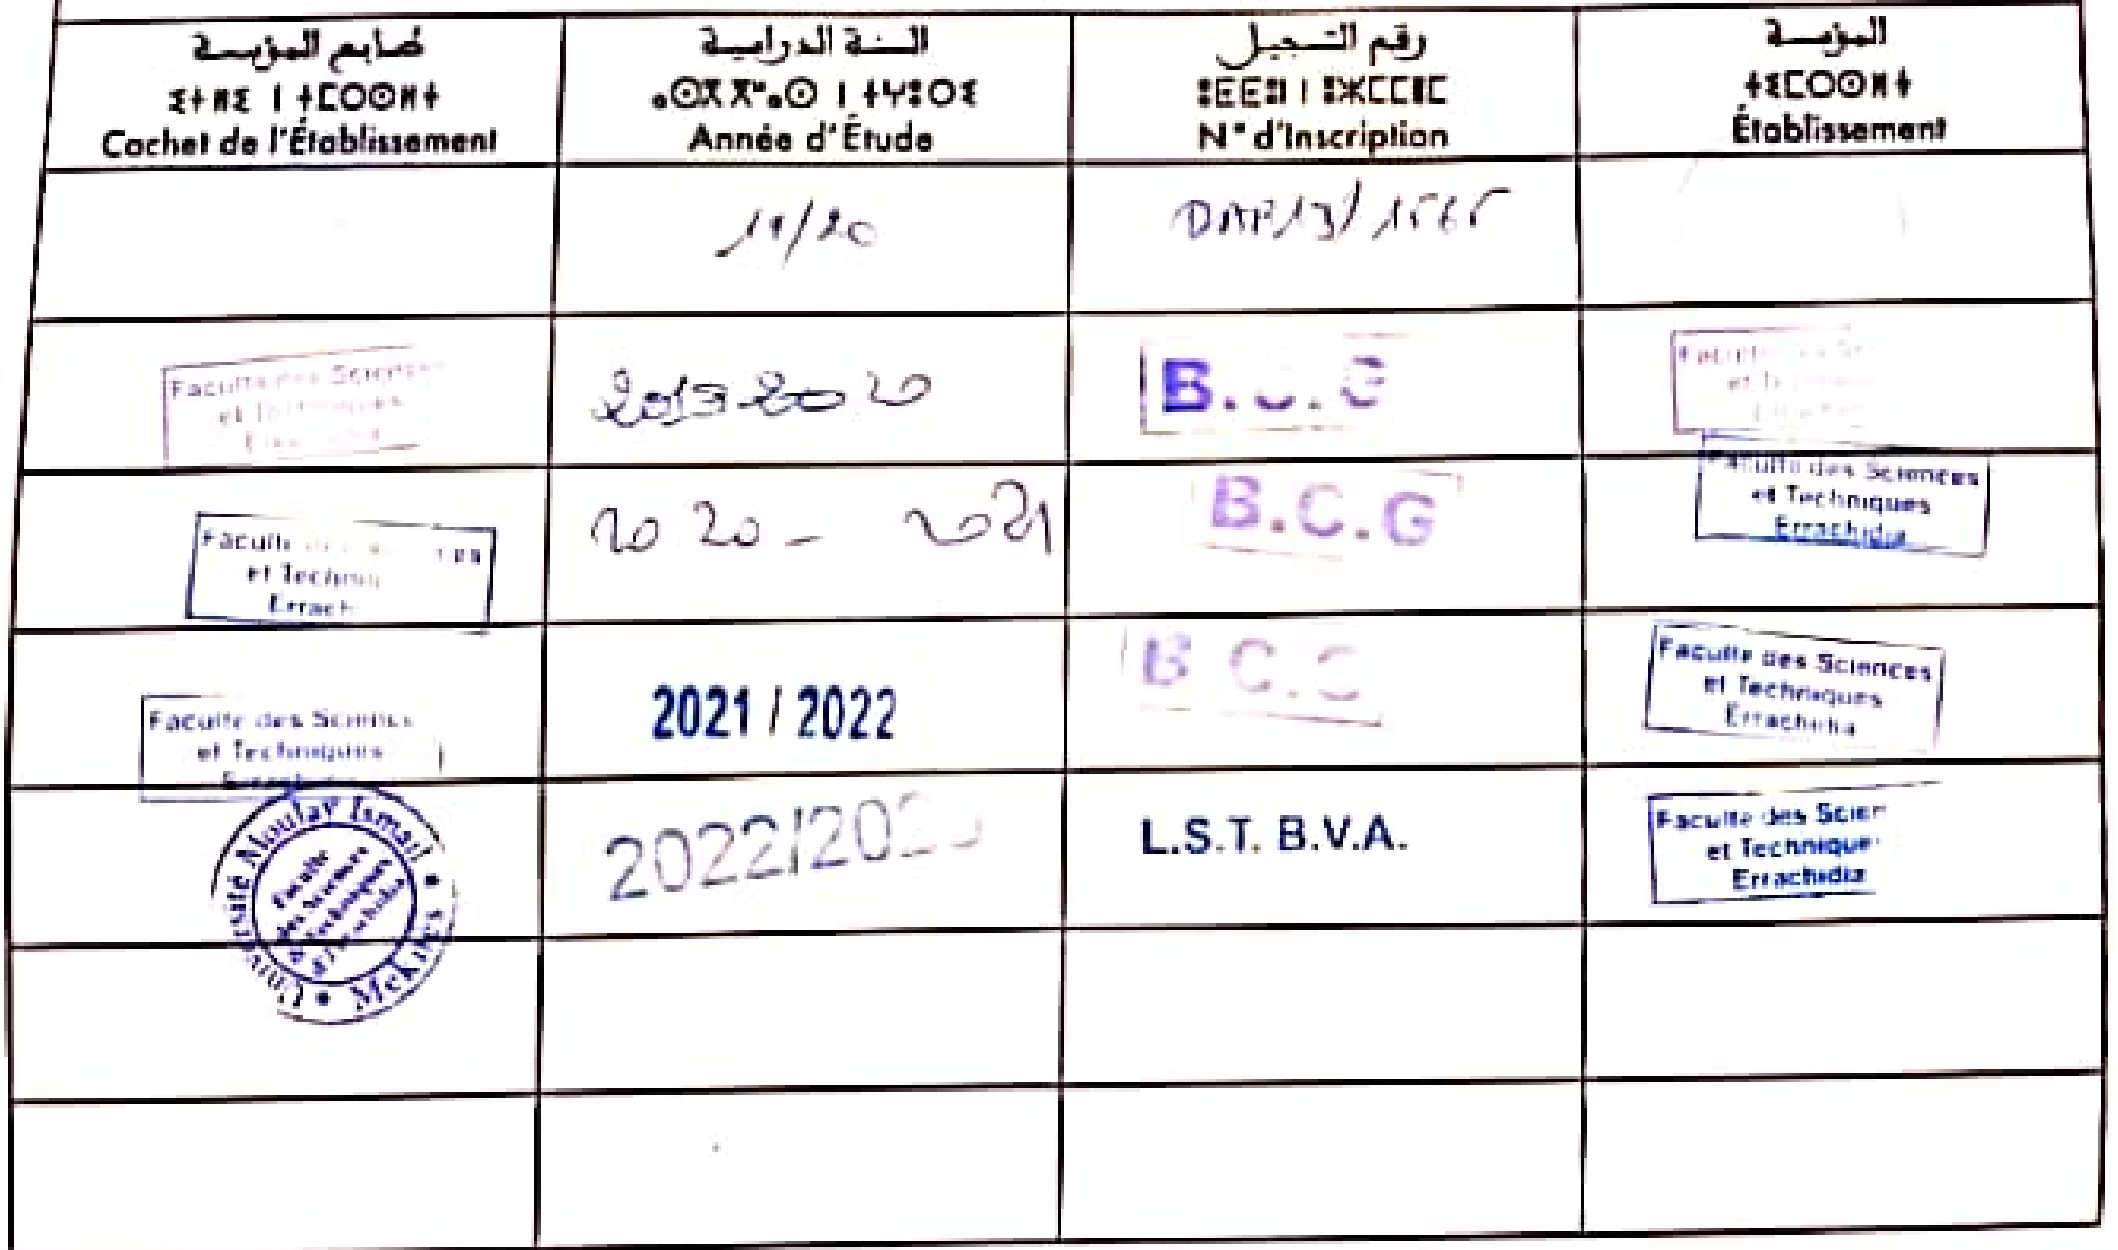 طابع المؤسسة
ⵉⵜⵍⵉ ⵏ ⵜⵎⵔⵙⵍⵜ
Cachet de l'Établissement
السنة الدراسية
ⴰⵙⴳⴳⵯⴰⵙ ⵏ ⵜⵖⵓⵔⵉ
Année d'Étude
رقم التسجيل
ⵓⵟⵟⵓⵏ ⵏ ⵓⵣⵎⵎⴻⵎ
N° d'Inscription
المؤسسة
ⵜⵉⵎⵔⵙⵍⵜ
Établissement
19/20
Faculte des Sciences
et Techniques
2019-2020
B.C.G
Faculte des
et
Faculte
et Techni
Errach
2020 - 2021
B.C.G
Faculte des Sciences
et Techniques
Errachidia
Faculte des Sciences
et Techniques
2021 / 2022
B C.G
Faculte des Sciences
et Techniques
Errachidia
Université Moulay Ismail • Meknès •
Faculté
des Sciences
et Techniques
Errachidia
2022/202
L.S.T. B.V.A.
Faculte des Scien
et Technique
Errachidia